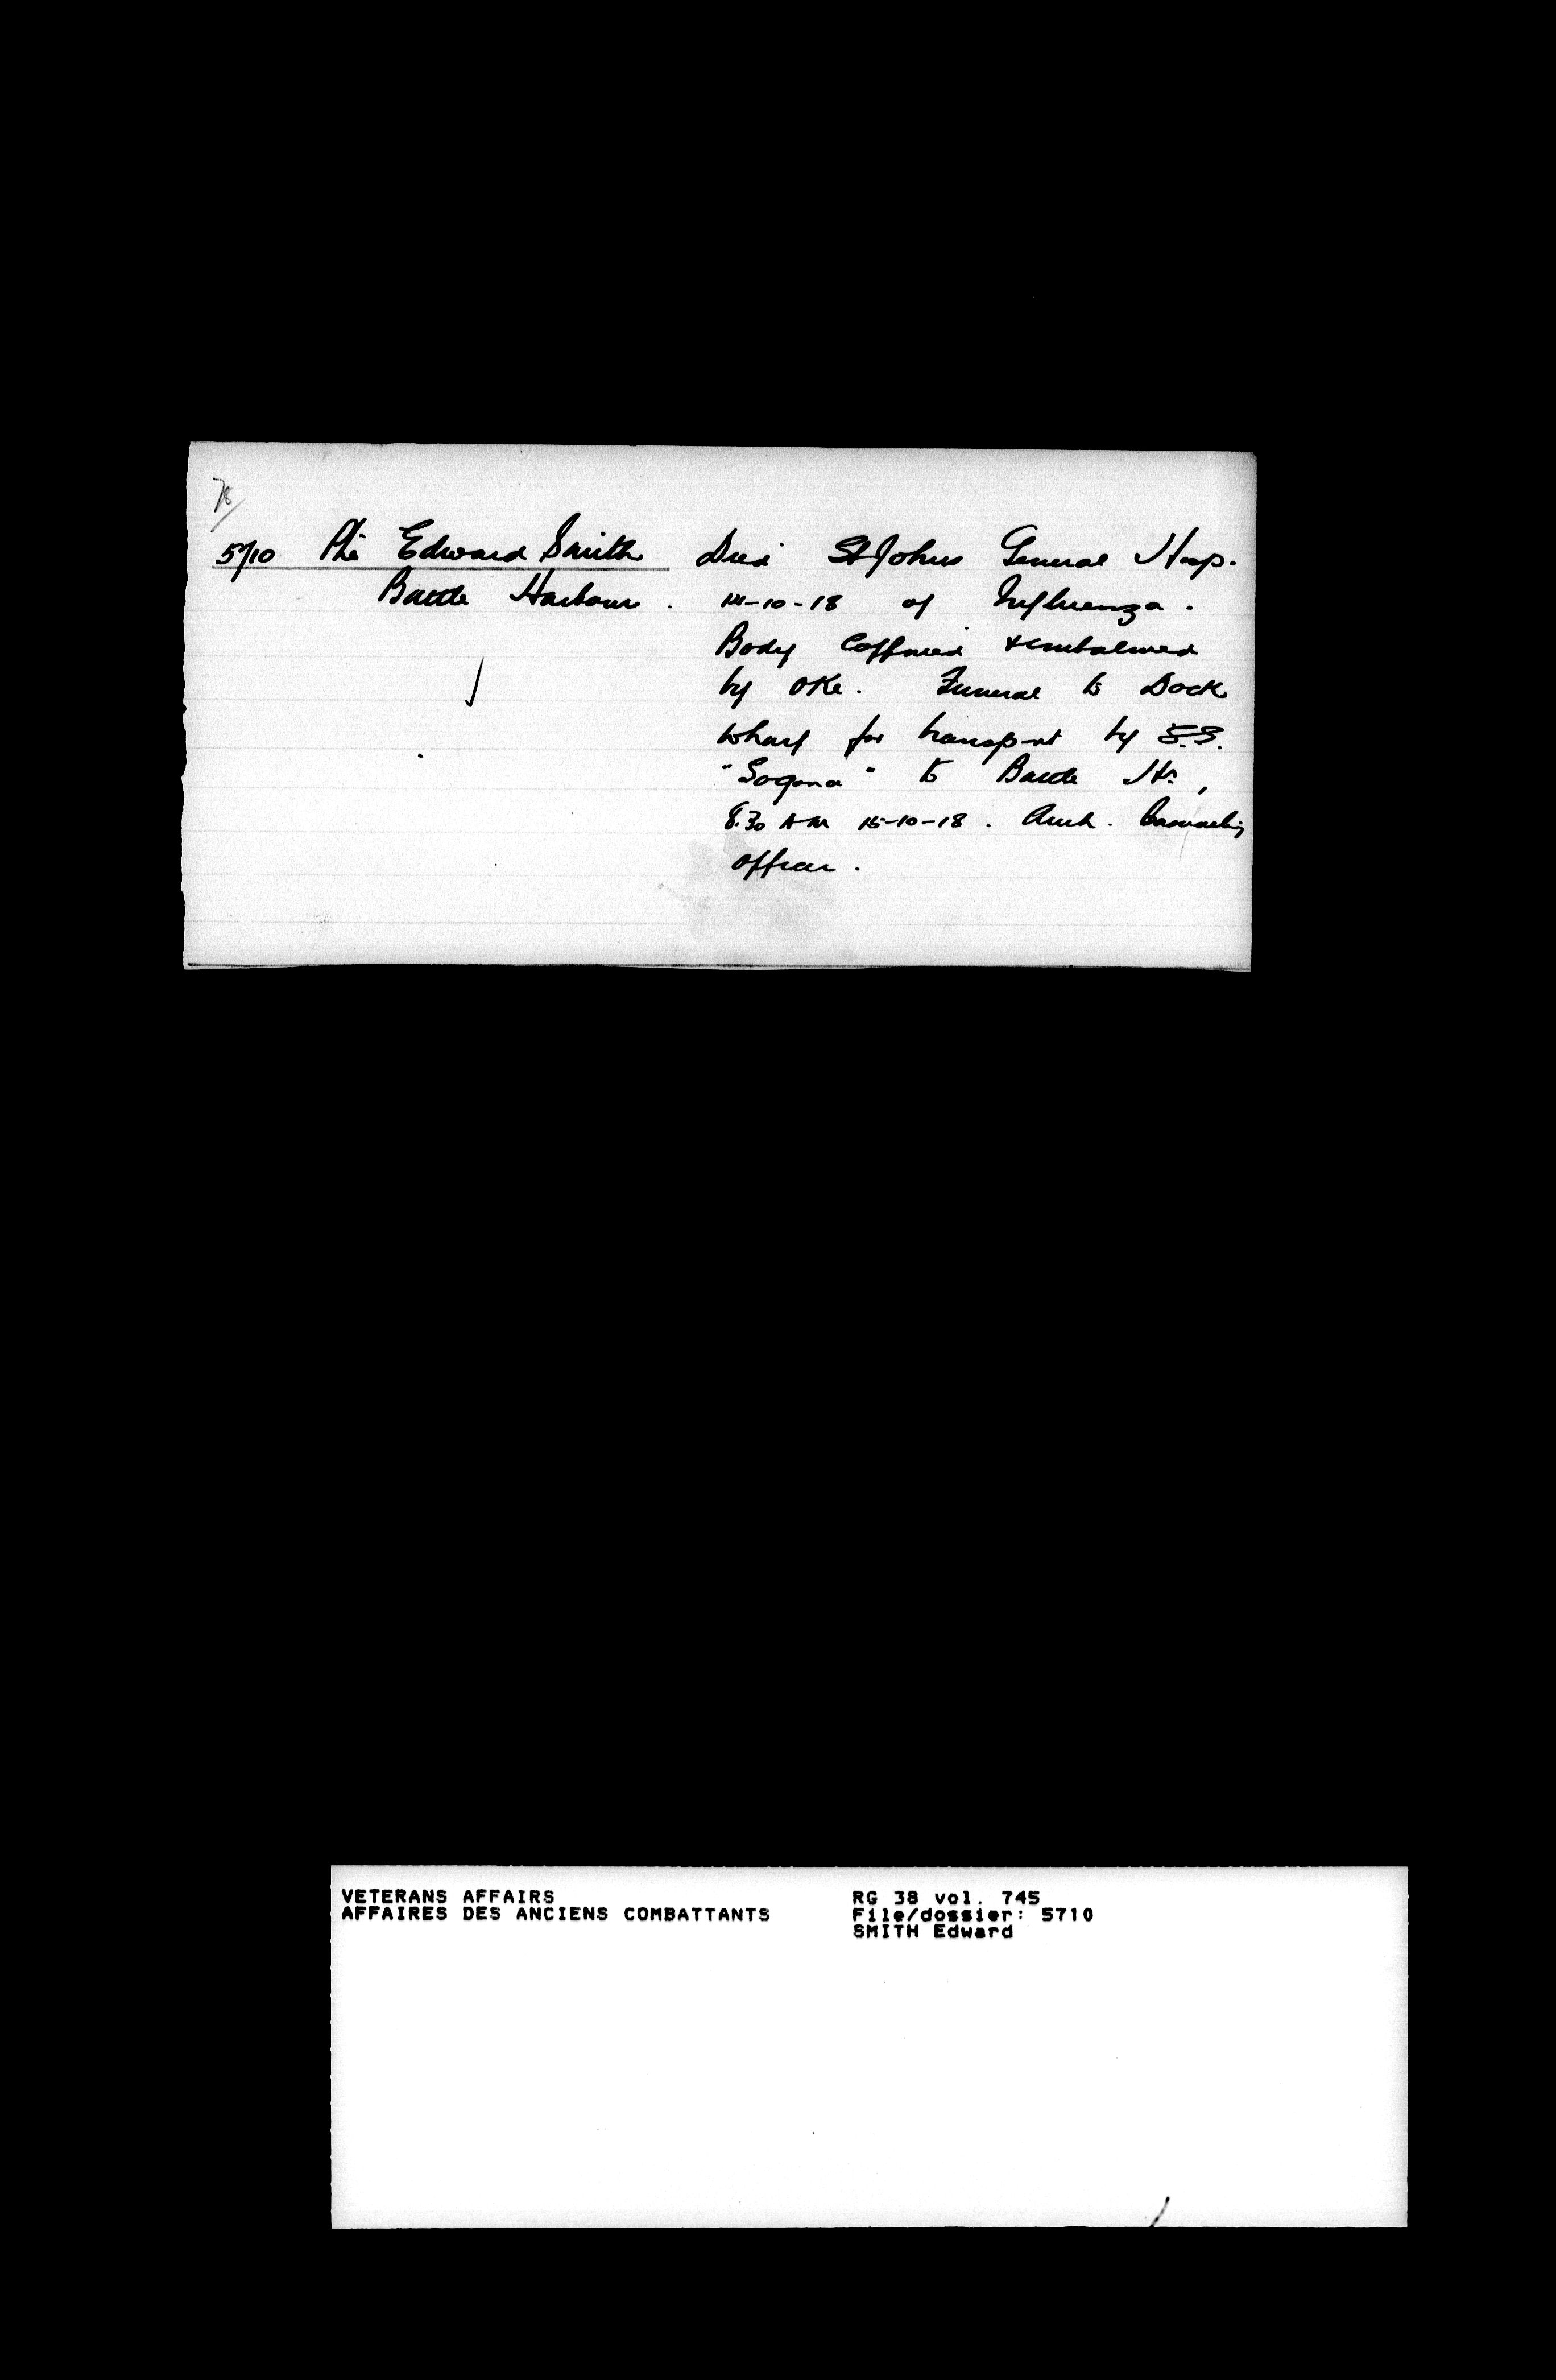 78/
5710 Pte Edward Smith Died St Johns General Hosp.
Battle Harbour. 14-10-18 of Influenza.
Body Coffined & embalmed
by Oke. Funeral to Dock
Wharf for transport by S.S.
"Sagona" to Battle Hr,
8.30 AM 15-10-18. Auth. Commanding
Officer.
VETERANS AFFAIRS
AFFAIRES DES ANCIENS COMBATTANTS
RG 38 vol. 745
File/dossier: 5710
SMITH Edward